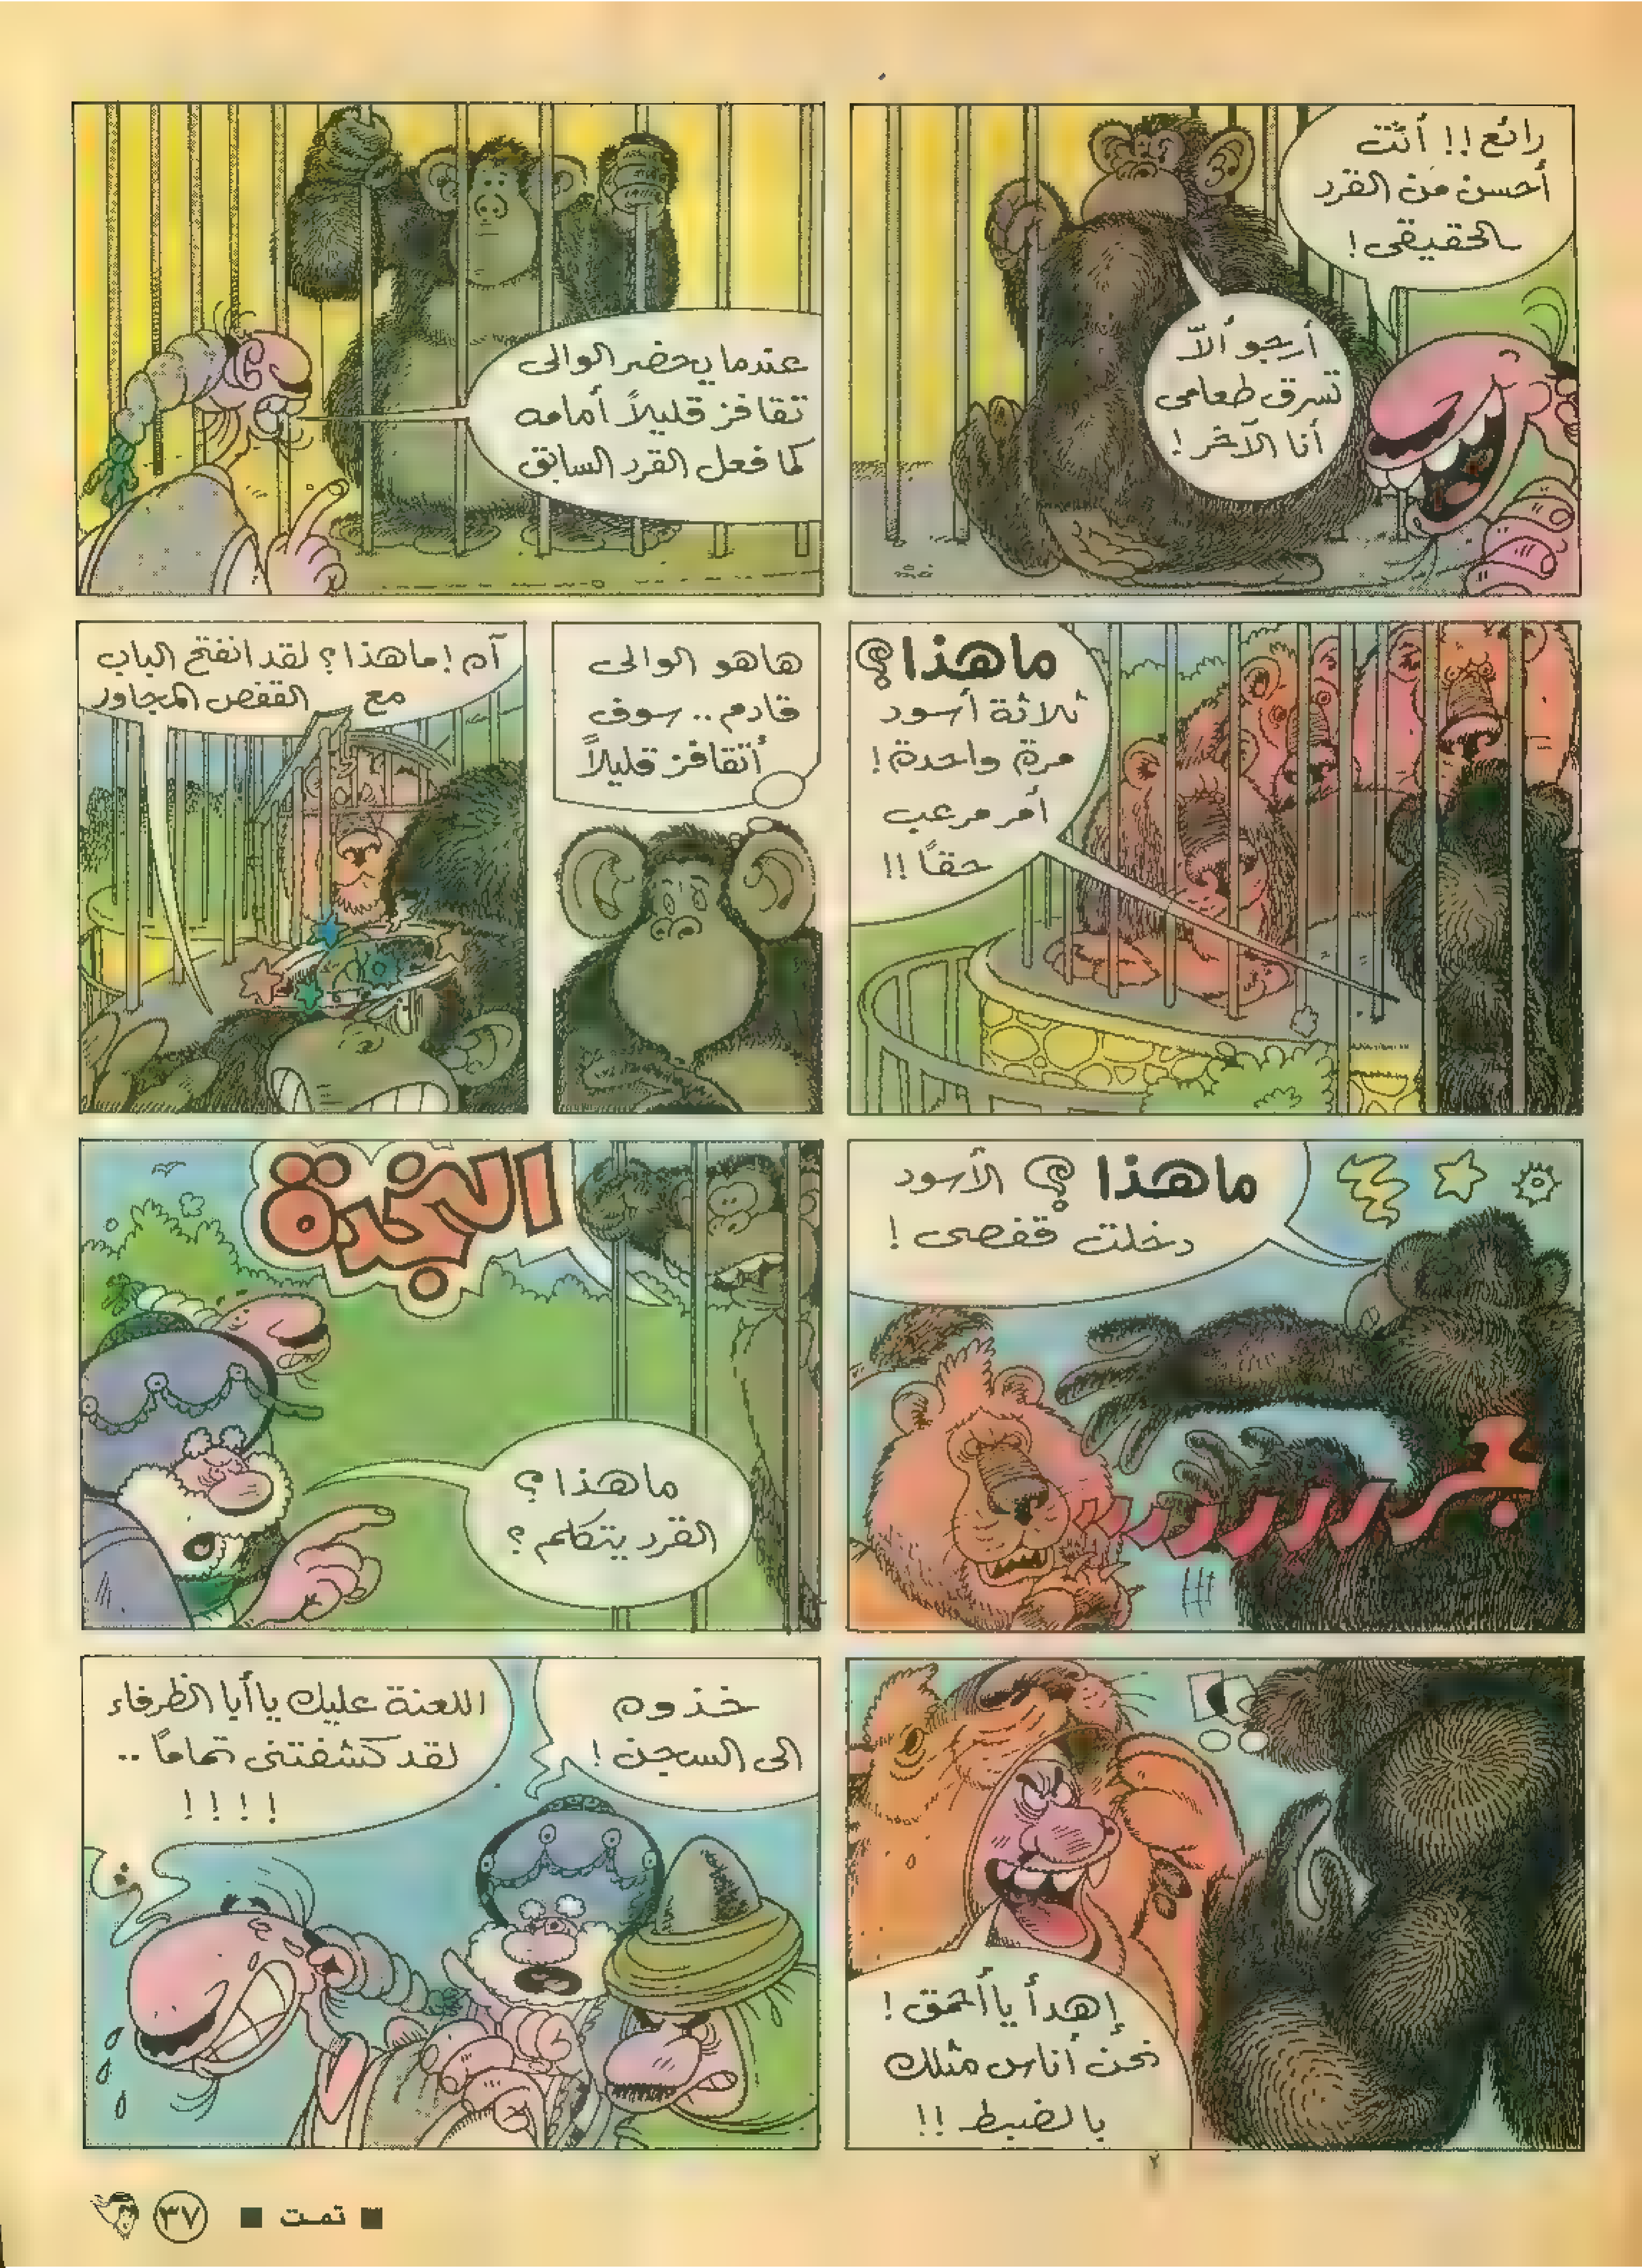 رائع!! أنت
أحسن من القرد
الحقيقى!
أرجو ألاّ
تسرق طعامى
أنا الآخر!
عندما يحضر الوالى
تقافز قليلاً أمامه
كما فعل القرد السابق
ماهذا؟
ثلاثة أسود
مرة واحدة!
أمر مرعب
حقاً!!
هاهو الوالى
قادم.. سوف
أتقافز قليلاً
آه! ماهذا؟ لقد انفتح الباب
مع القفص المجاور
ماهذا؟ الأسود
دخلت قفصى!
النجدة
ماهذا؟
القرد يتكلم؟
إهدأ يا أحمق!
نحن أناس مثلك
بالضبط!!
خذوه
الى السجن!
اللعنة عليك يا أبا الظرفاء
لقد كشفتنى تماماً..
!!!!
٢
■ تمت ■ ٣٧